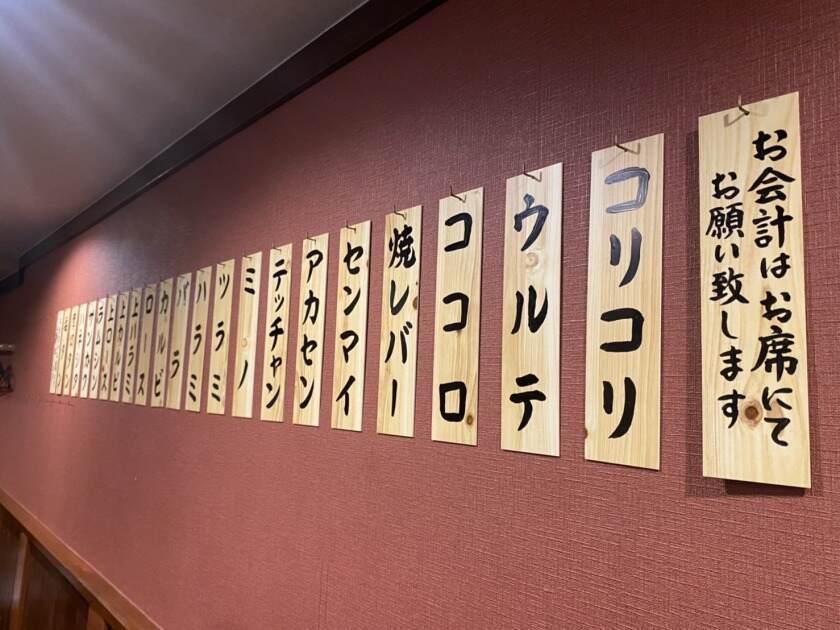 お会計はお席にて
お願い致します
コリコリ
ウルテ
ココロ
焼レバー
センマイ
アカセン
テッチャン
ミノ
ツラミ
ハラミ
バラ
カルビ
ロース
上ハラミ
上カルビ
上ロース